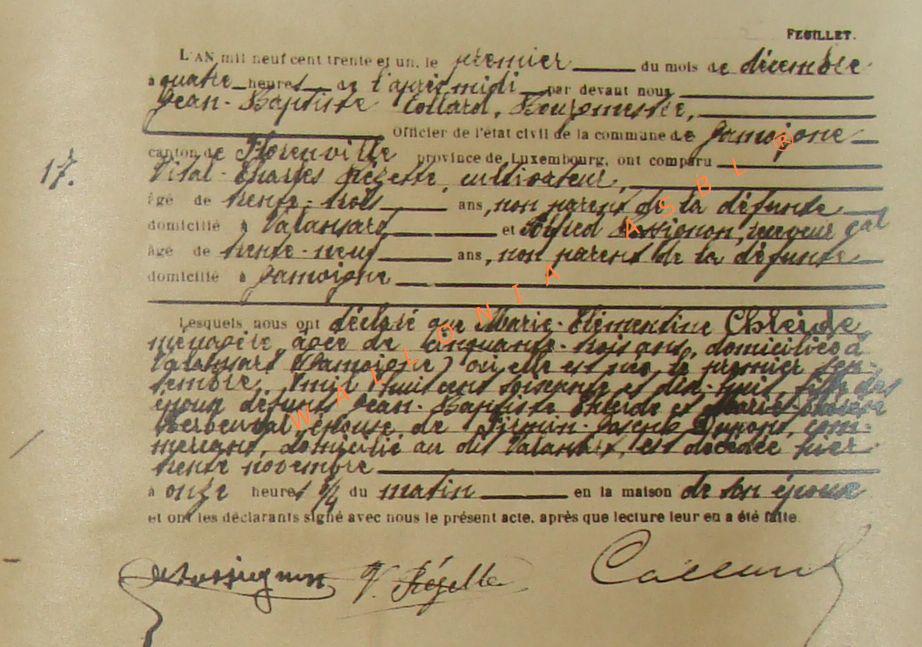 FEUILLET.
L'AN mil neuf cent trente et un, le premier du mois de décembre
à quatre heures de l'après midi par devant nous
Jean-Baptiste Collard, Bourgmestre,
Officier de l'état civil de la commune de Jamoigne
canton de Florenville province de Luxembourg, ont comparu
17. Vital-Charles Régette, cultivateur,
âgé de trente-trois ans, non parent de la défunte
domicilié à Valansart et
âgé de trente-neuf ans, non parent de la défunte
domicilié à Jamoigne
Lesquels nous ont déclaré que Marie-Clémentine
ménagère âgée de cinquante-trois ans, domiciliée à
Valansart (Jamoigne) où elle est née, le premier sep-
tembre, mil huit cent soixante et dix-huit, fille des
époux défunts Jean-Baptiste et Marie
épouse de Joseph Dupont, com-
merçant, domicilié au dit Valansart, est décédée hier
trente novembre
à onze heures 1/4 du matin en la maison de son époux
et ont les déclarants signé avec nous le présent acte, après que lecture leur en a été faite.
V. Régette Collard
WALLONIA ASBL